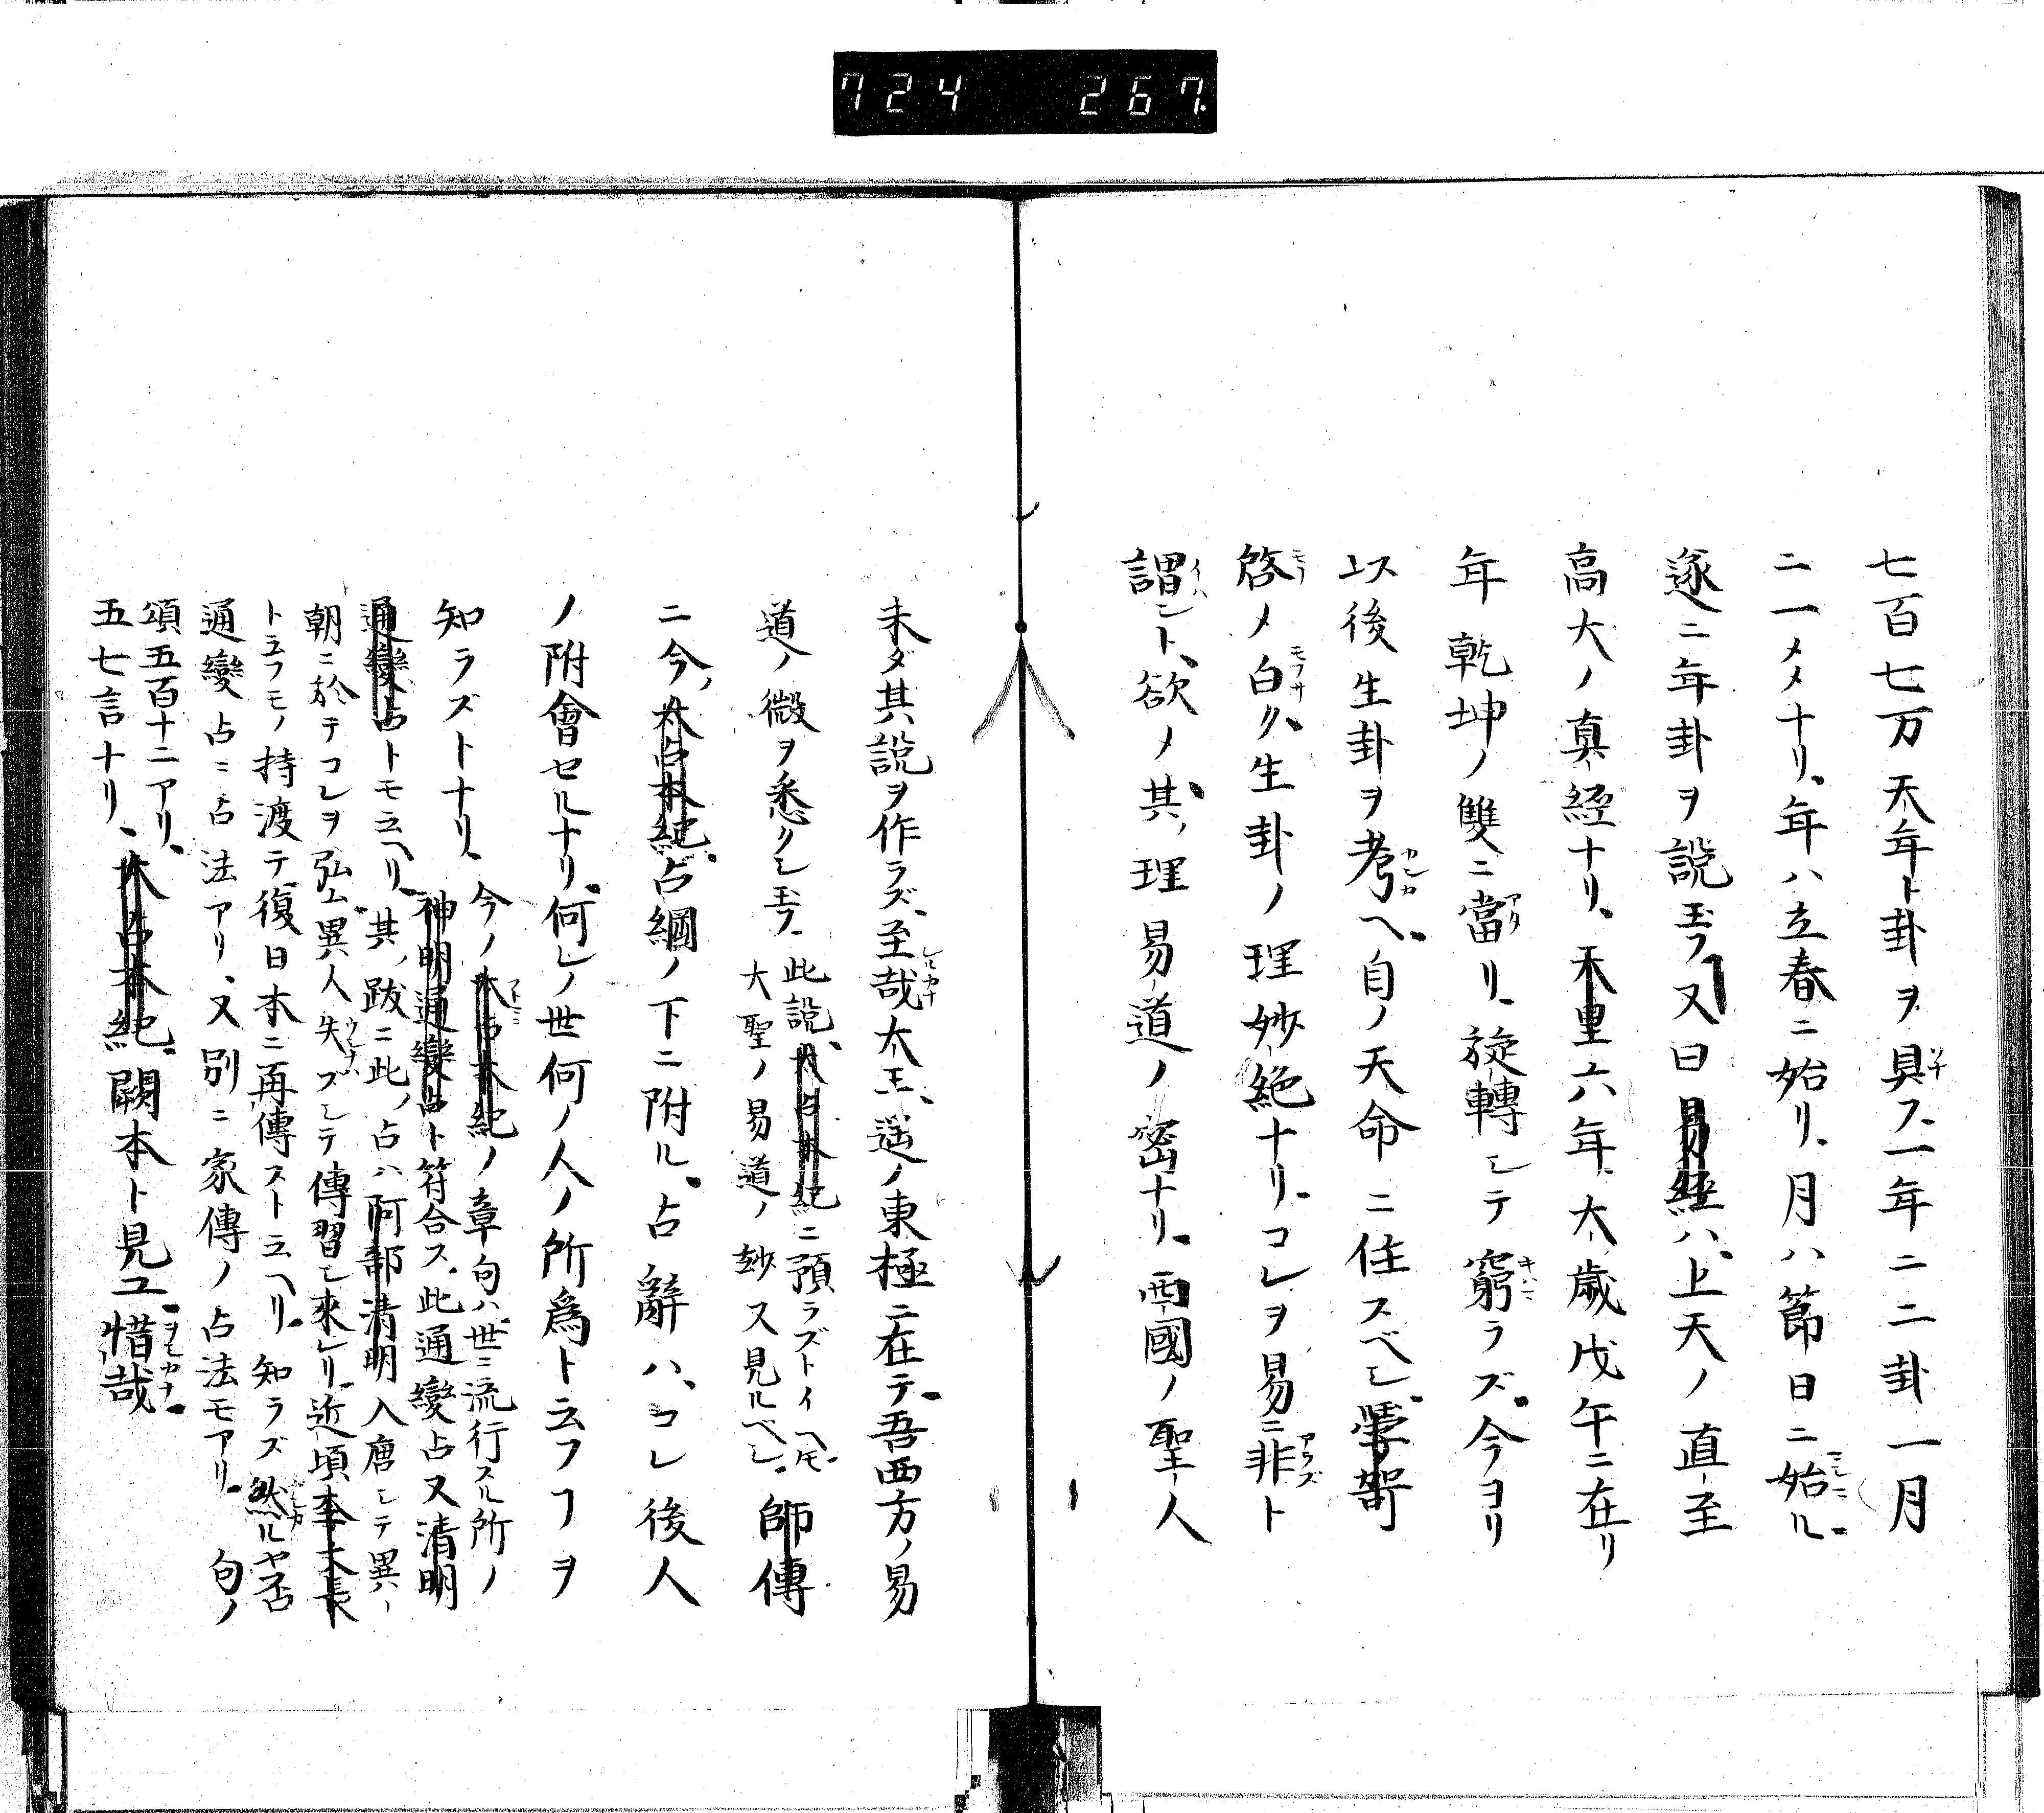 724 267.
七百七万天年ト卦ヲ具フ一年ニ二卦一月
ニ一メメナリ年ハ立春ニ始リ月ハ節日ニ始ル
遂ニ年卦ヲ説玉フ又曰易経ハ上天ノ直至
高大ノ真経ナリ未重六年太歳戊午ニ在リ
年乾坤ノ雙ニ當リ旋轉シテ窮ラズ今ヨリ
以後生卦ヲ考ヘ自ノ天命ニ住スベシ學哿
啓メ白ク生卦ノ理妙絶ナリコレヲ易ニ非ト
謂ント欲メ其ノ理易道ノ密ナリ西國ノ聖人
未ダ其説ヲ作ラズ至哉太王遥ノ東極ニ在テ吾西方ノ易
道ノ微ヲ悉クシ玉フ 此説大占本紀ニ預ラズトイヘ𪜈
大聖ノ易道ノ玅ス見ルベシ 師傳
ニ今ノ太占本紀占綱ノ下ニ附ル占辭ハコレ後人
ノ附會セルナリ何レノ世何ノ人ノ所爲ト云フヿヲ
知ラズトナリ 今ノ太占本紀ノ章句ハ世ニ流行スル所ノ
神明通變占ト符合ス此通變占又清明
通變占トモ云ヘリ其ノ跋ニ此ノ占ハ阿部清明入唐シテ異ノ
朝ニ於テコレヲ弘ム異人失ズシテ傳習シ來レリ近頃李大長
ト云フモノ持渡テ復日本ニ再傳スト云ヘリ知ラズ然ルヤ否
通變占ニ占法アリ又別ニ家傳ノ占法モアリ 句ノ
頌五百十二アリ
五七言ナリ 太占本紀闕本ト見ユ惜哉